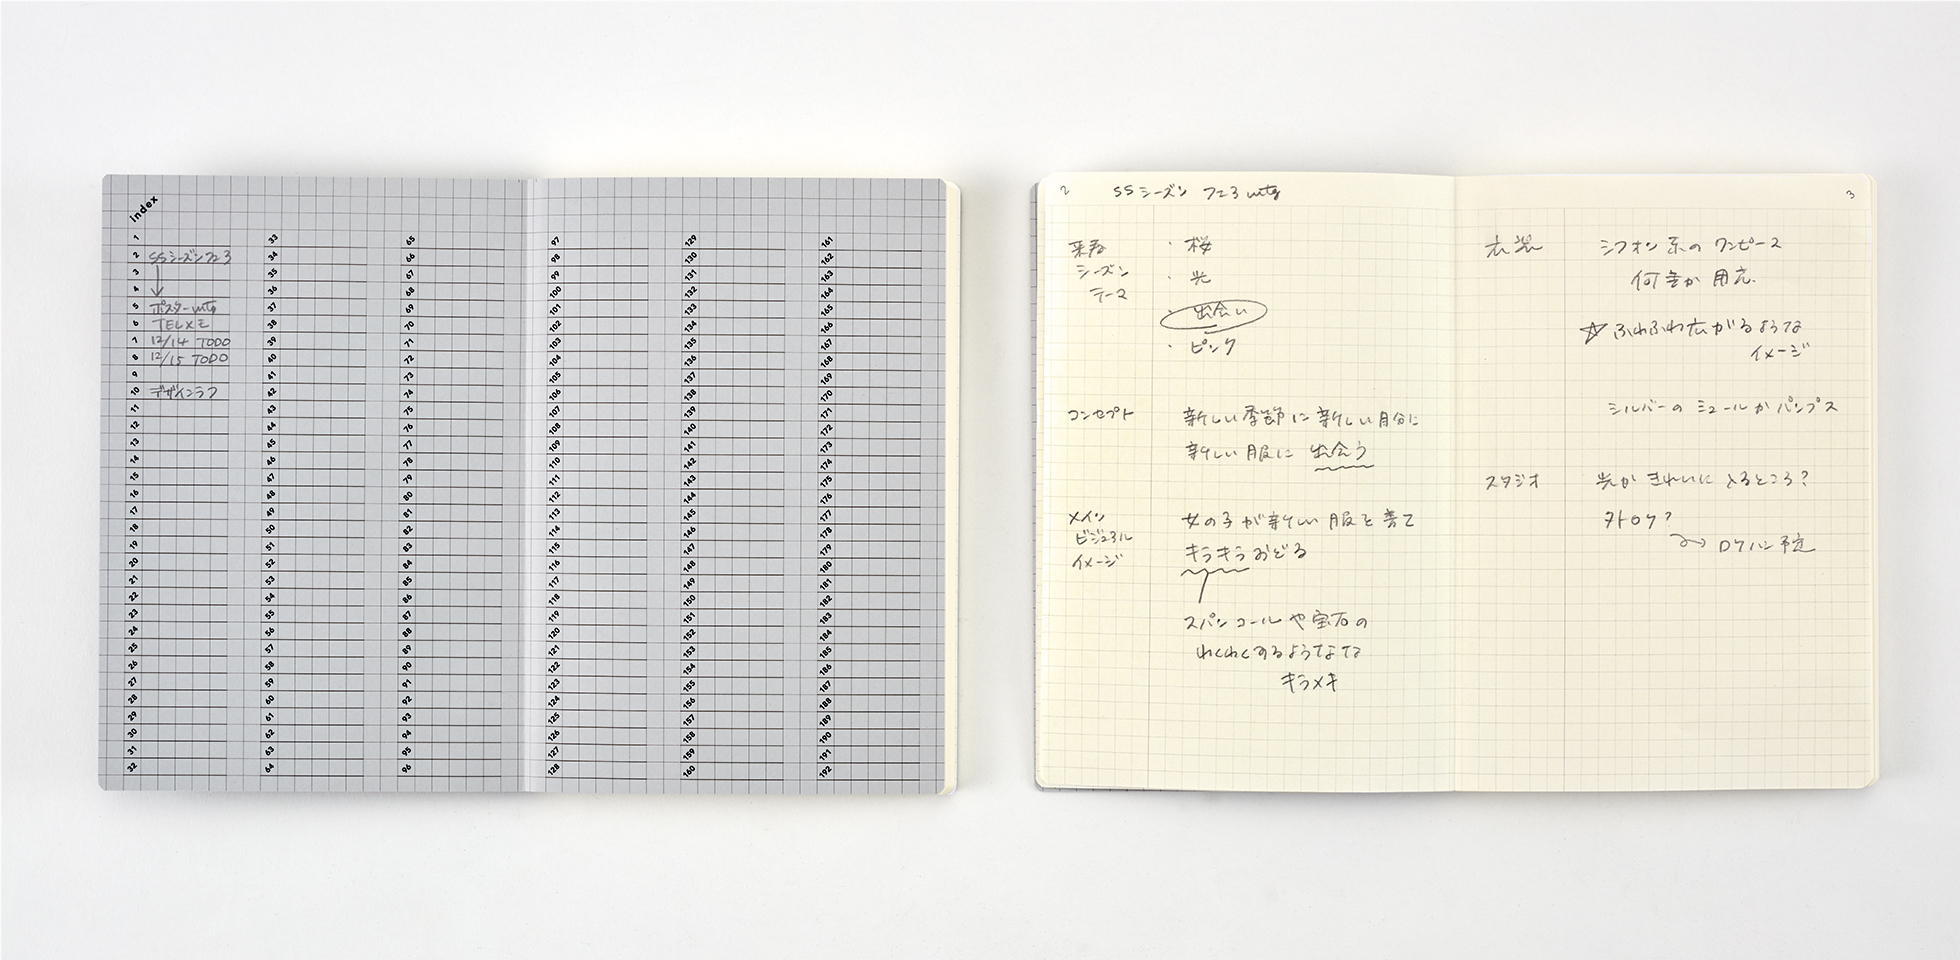 index
1
2 SSシーズンフェ3
3
4
5 ポスターmtg
6 TELメモ
7 12/14 TODO
8 12/15 TODO
9
10 デザインラフ
11
12
13
14
15
16
17
18
19
20
21
22
23
24
25
26
27
28
29
30
31
32
33
34
35
36
37
38
39
40
41
42
43
44
45
46
47
48
49
50
51
52
53
54
55
56
57
58
59
60
61
62
63
64
65
66
67
68
69
70
71
72
73
74
75
76
77
78
79
80
81
82
83
84
85
86
87
88
89
90
91
92
93
94
95
96
97
98
99
100
101
102
103
104
105
106
107
108
109
110
111
112
113
114
115
116
117
118
119
120
121
122
123
124
125
126
127
128
129
130
131
132
133
134
135
136
137
138
139
140
141
142
143
144
145
146
147
148
149
150
151
152
153
154
155
156
157
158
159
160
161
162
163
164
165
166
167
168
169
170
171
172
173
174
175
176
177
178
179
180
181
182
183
184
185
186
187
188
189
190
191
192
2
SSシーズン フェ3 mtg
来春
シーズン
テーマ
・桜
・光
・出会い
・ピンク
コンセプト
新しい季節に新しい自分に
新しい服に 出会う
メイン
ビジュアル
イメージ
女の子が新しい服を着て
キラキラおどる
スパンコールや宝石の
わくわくするような
キラメキ
3
衣裳
シフォン系のワンピース
何着か用意.
☆ふわふわ広がるような
イメージ
シルバーのミュールかパンプス
スタジオ
光がきれいにとるところ?
外ロケ?
→ロケハン予定